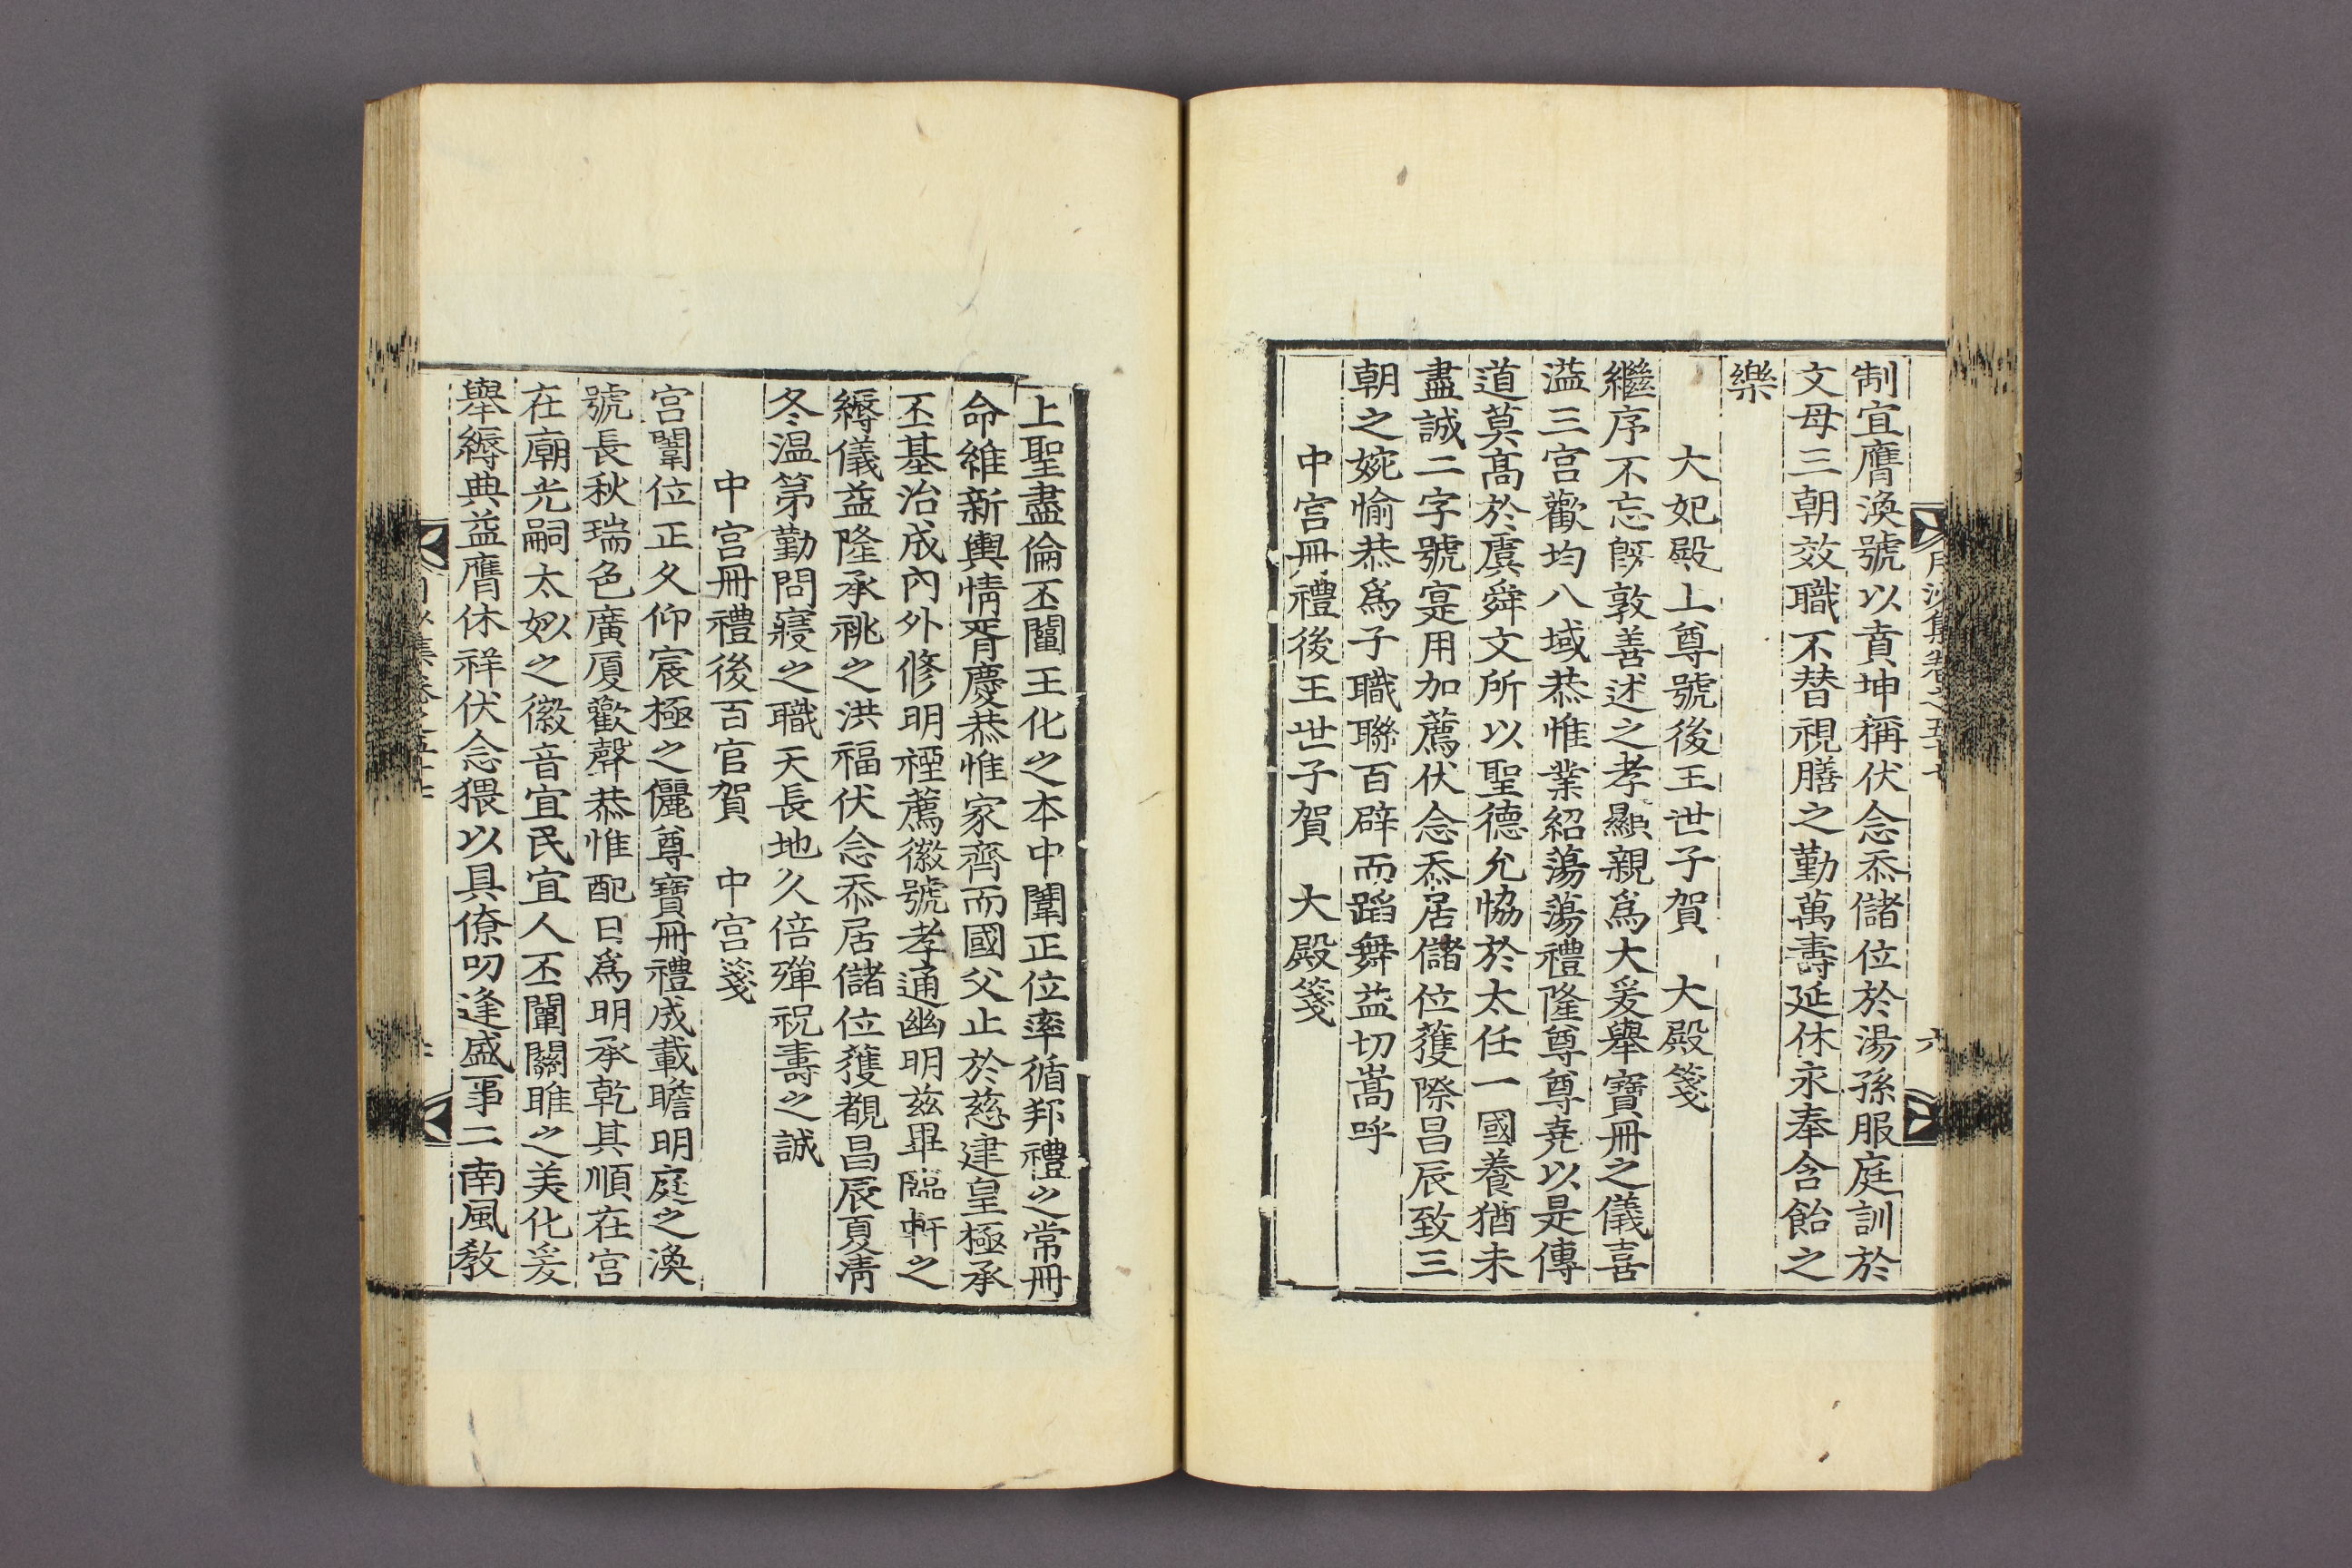 制宜膺渙號以賁坤稱伏念忝儲位於湯孫服庭訓於
文母三朝效職不替視膳之勤萬壽延休永奉含飴之
樂
大妃殿上尊號後王世子賀 大殿箋
繼序不忘旣敦善述之孝顯親爲大爰舉寶冊之儀喜
溢三宮歡均八域恭惟業紹蕩蕩禮隆尊尊堯以是傳
道莫高於虞舜文所以聖德允恊於太任一國養猶未
盡誠二字號寔用加薦伏念忝居儲位獲際昌辰致三
朝之婉愉恭爲子職聯百辟而蹈舞益切嵩呼
中宮冊禮後王世子賀 大殿箋
上聖盡倫丕闡王化之本中闈正位率循邦禮之常冊
命維新輿情胥慶恭惟家齊而國父止於慈建皇極承
丕基治成內外修明禋薦徽號孝通幽明玆畢臨軒之
縟儀益隆承祧之洪福伏念忝居儲位獲覩昌辰夏凊
冬溫第勤問寢之職天長地久倍殫祝壽之誠
中宮冊禮後百官賀 中宮箋
宮闈位正久仰宸極之儷尊寶冊禮成載瞻明庭之渙
號長秋瑞色廣厦歡聲恭惟配日爲明承乾其順在宮
在廟光嗣太姒之徽音宜民宜人丕闡關雎之美化爰
舉縟典益膺休祥伏念猥以具僚叨逢盛事二南風敎